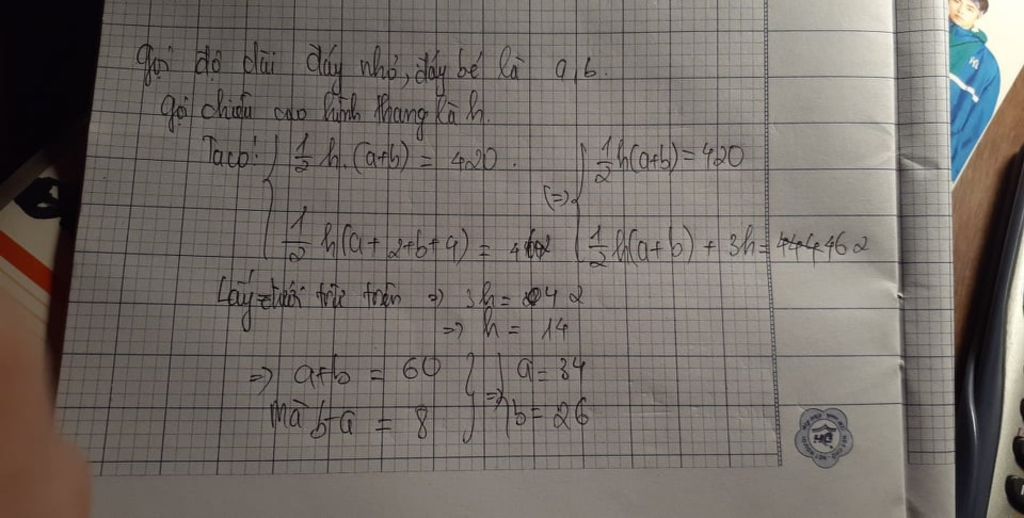 Gọi độ dài đáy nhỏ, đáy bé là a, b.
Gọi chiều cao hình thang là h.
Ta có: { 1/2 h.(a+b) = 420. (=>) { 1/2 h(a+b) = 420
{ 1/2 h(a + 2+b+4) = 462 { 1/2 h(a+b) + 3h = 462
Lấy dưới trừ trên => 3h = 42
=> h = 14
=> a+b = 60 } => { a = 34
mà b-a = 8 } { b = 26